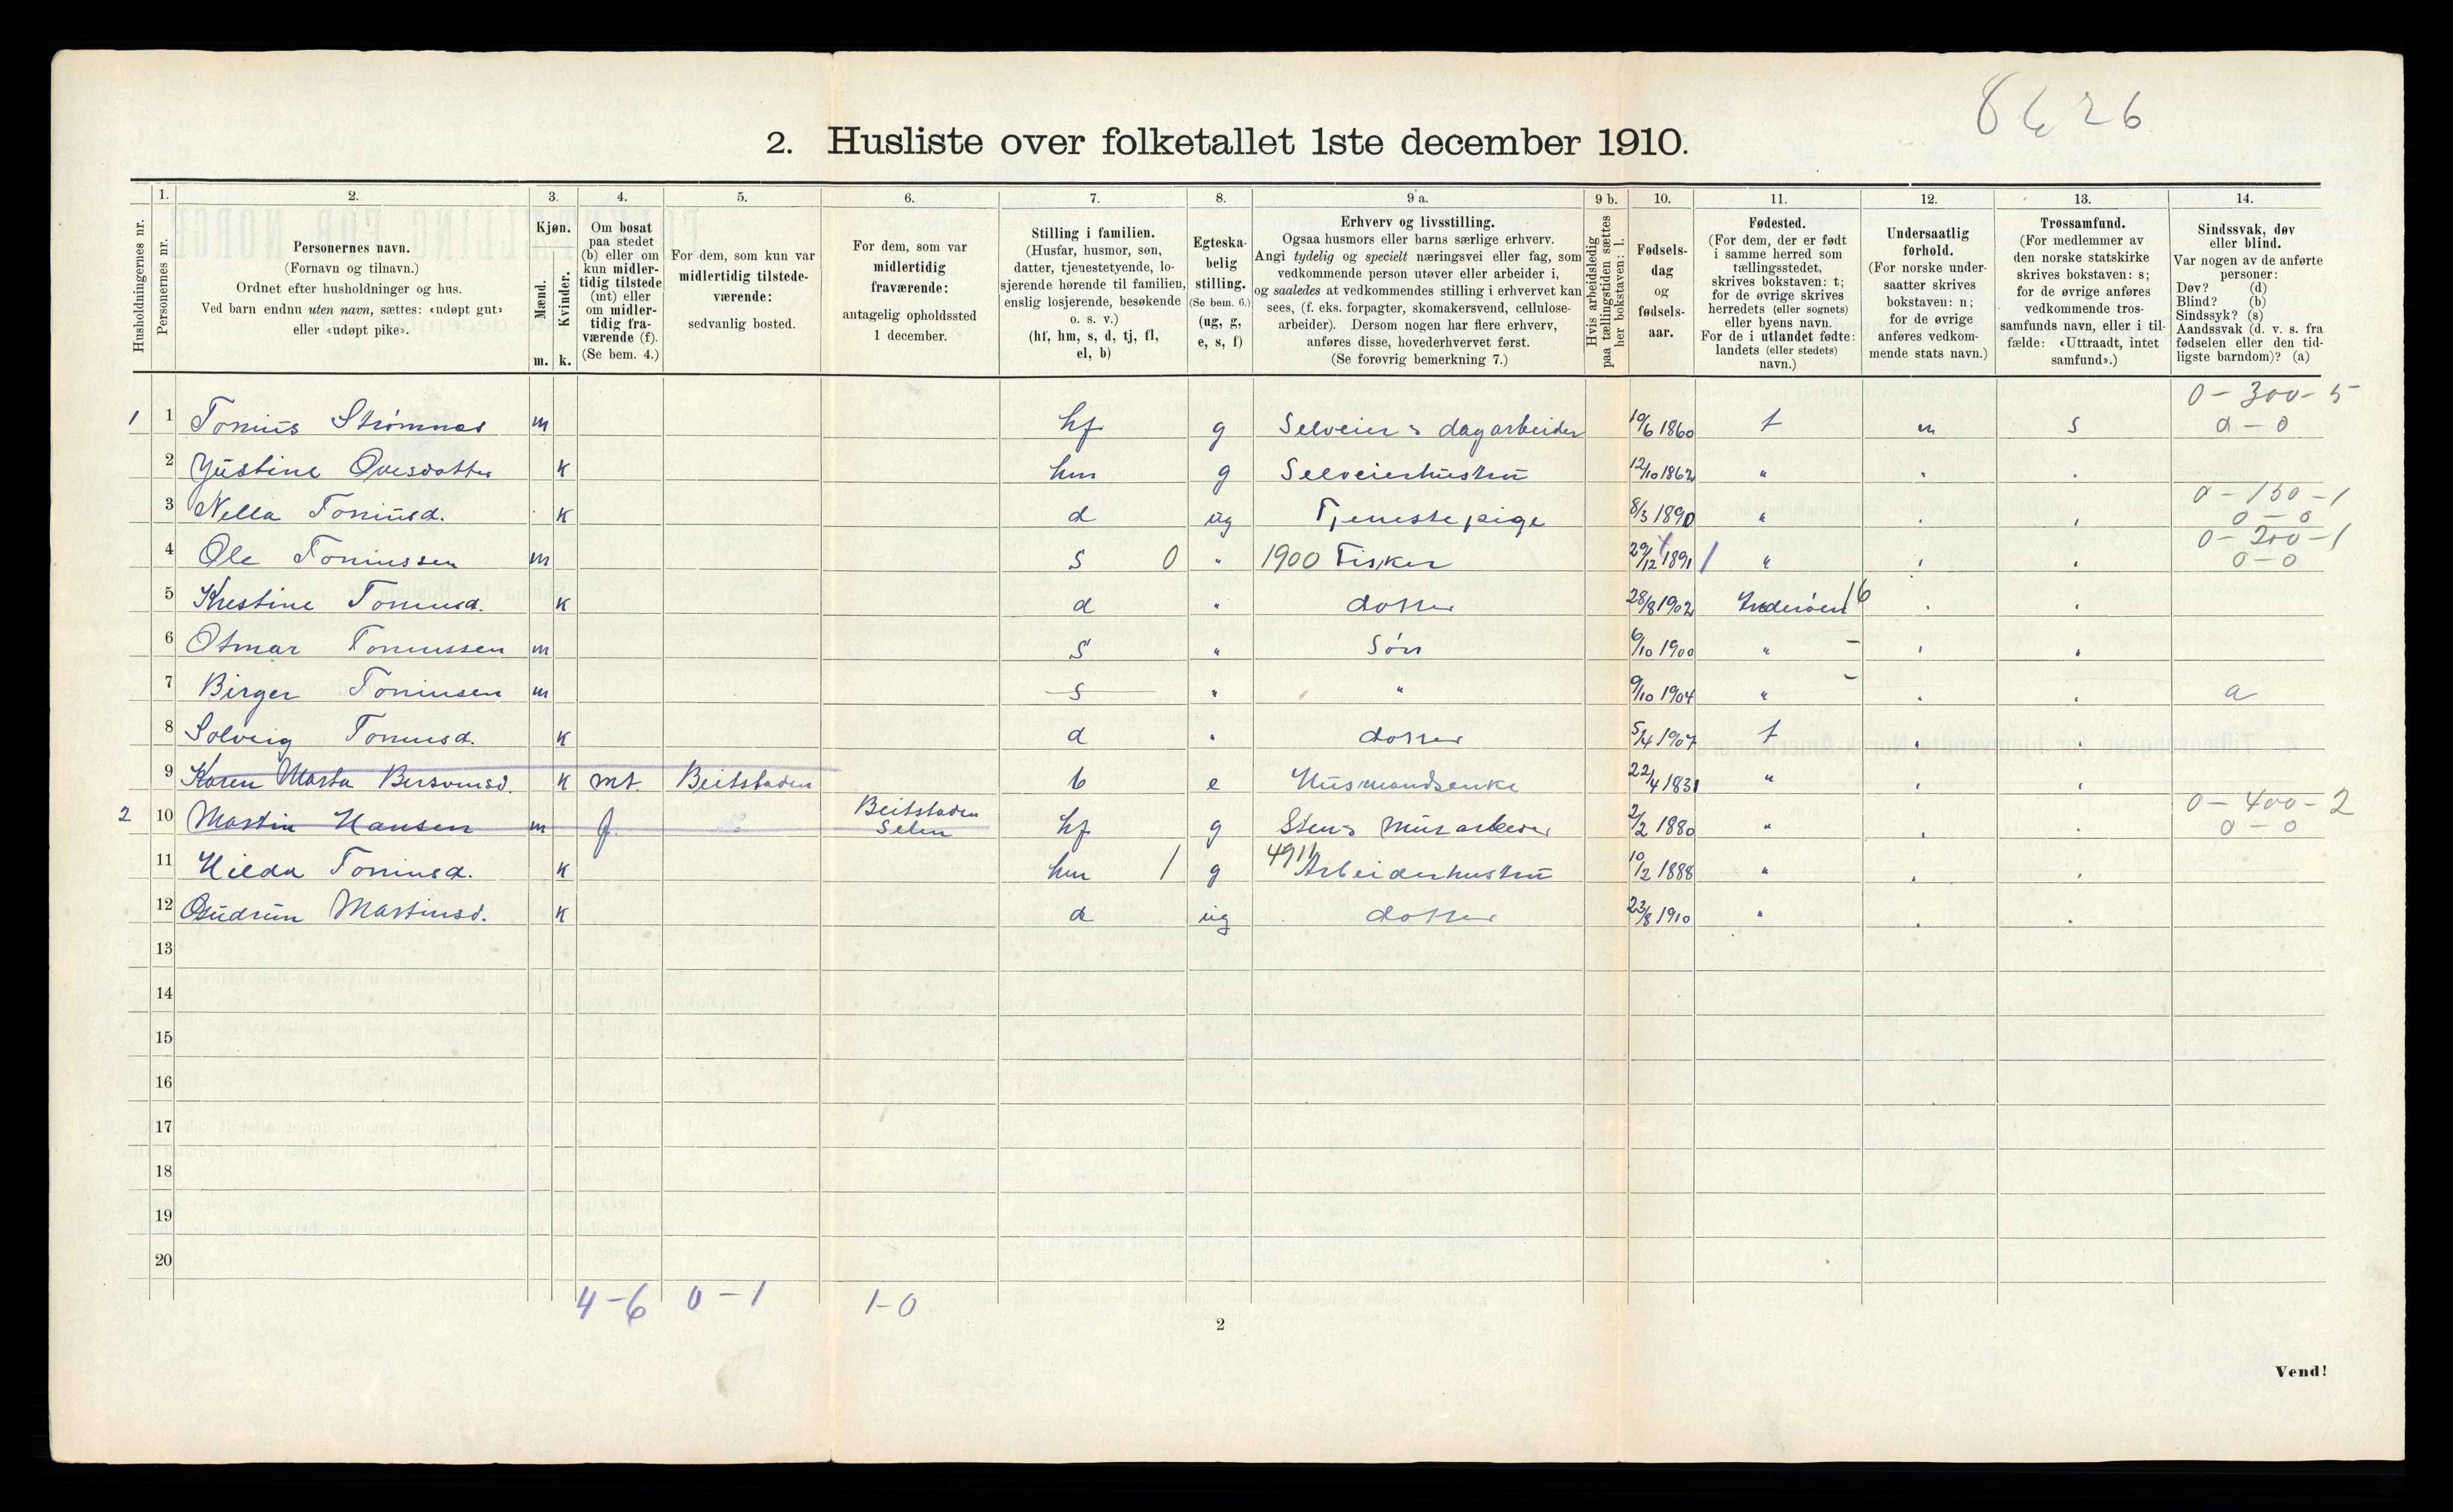 8 6 26
2. Husliste over folketallet 1ste december 1910.
Husholdningernes nr.
1.
Personernes nr.
2.
Personernes navn.
(Fornavn og tilnavn.)
Ordnet efter husholdninger og hus.
Ved barn endnu uten navn, sættes: «udøpt gut»
eller «udøpt pike».
3.
Kjøn.
Mænd.
Kvinder.
m. k.
4.
Om bosat
paa stedet
(b) eller om
kun midler-
tidig tilstede
(mt) eller
om midler-
tidig fra-
værende (f).
(Se bem. 4.)
5.
For dem, som kun var
midlertidig tilstede-
værende:
sedvanlig bosted.
6.
For dem, som var
midlertidig
fraværende:
antagelig opholdssted
1 december.
7.
Stilling i familien.
(Husfar, husmor, søn,
datter, tjenestetyende, lo-
sjerende hørende til familien,
enslig losjerende, besøkende
o. s. v.)
(hf, hm, s, d, tj, fl,
el, b)
8.
Egteska-
belig
stilling.
(Se bem. 6.)
(ug, g,
e, s, f)
9 a.
Erhverv og livsstilling.
Ogsaa husmors eller barns særlige erhverv.
Angi tydelig og specielt næringsvei eller fag, som
vedkommende person utøver eller arbeider i,
og saaledes at vedkommendes stilling i erhvervet kan
sees, (f. eks. forpagter, skomakersvend, cellulose-
arbeider). Dersom nogen har flere erhverv,
anføres disse, hovederhvervet først.
(Se forøvrig bemerkning 7.)
9 b.
Hvis arbeidsledig
paa tællingstiden sættes
her bokstaven: l.
10.
Fødsels-
dag
og
fødsels-
aar.
11.
Fødested.
(For dem, der er født
i samme herred som
tællingsstedet,
skrives bokstaven: t;
for de øvrige skrives
herredets (eller sognets)
eller byens navn.
For de i utlandet fødte:
landets (eller stedets)
navn.)
12.
Undersaatlig
forhold.
(For norske under-
saatter skrives
bokstaven: n;
for de øvrige
anføres vedkom-
mende stats navn.)
13.
Trossamfund.
(For medlemmer av
den norske statskirke
skrives bokstaven: s;
for de øvrige anføres
vedkommende tros-
samfunds navn, eller i til-
fælde: «Uttraadt, intet
samfund».)
14.
Sindssvak, døv
eller blind.
Var nogen av de anførte
personer:
Døv? (d)
Blind? (b)
Sindssyk? (s)
Aandssvak (d. v. s. fra
fødselen eller den tid-
ligste barndom)? (a)
0 - 300 - 5
1 1 Tonius Strømnes m hf g Selveier & dagarbeider 10/6 1860 t n s 0 - 0
2 Justine Ovesdatter k hm g Selveierhustru 12/10 1862 "
0 - 150 - 1
3 Nella Toniusd. k d ug Tjenestepige 8/3 1890 " 0 - 0
0 - 200 - 1
4 Ole Toniussen m s 0 " 1900 Fisker 29/12 1891 / " 0 - 0
5 Kristine Toniusd. k d " datter 28/8 1902 Inderøen 16
6 Otmar Toniussen m s " Søn 6/10 1900 " -
7 Birger Toniusen m s " " 9/10 1904 " - a
8 Solveig Toniusd. k d " datter 5/4 1907 t
9 Karen Marta Bersvensd. k mt Beitstaden b e Husmandsenke 22/4 1831 "
Beitstaden 0 - 400 - 2
2 10 Martin Hansen m f Selen hf g Sten & Murarbeider 2/2 1880 " 0 - 0
4911
11 Hilda Toniusd. k hm / g Arbeiderhustru 10/2 1888 "
12 Gudrun Martinsd. k d ug datter 23/8 1910 "
13
14
15
16
17
18
19
20
4 - 6 0 - 1 1 - 0
2
Vend!